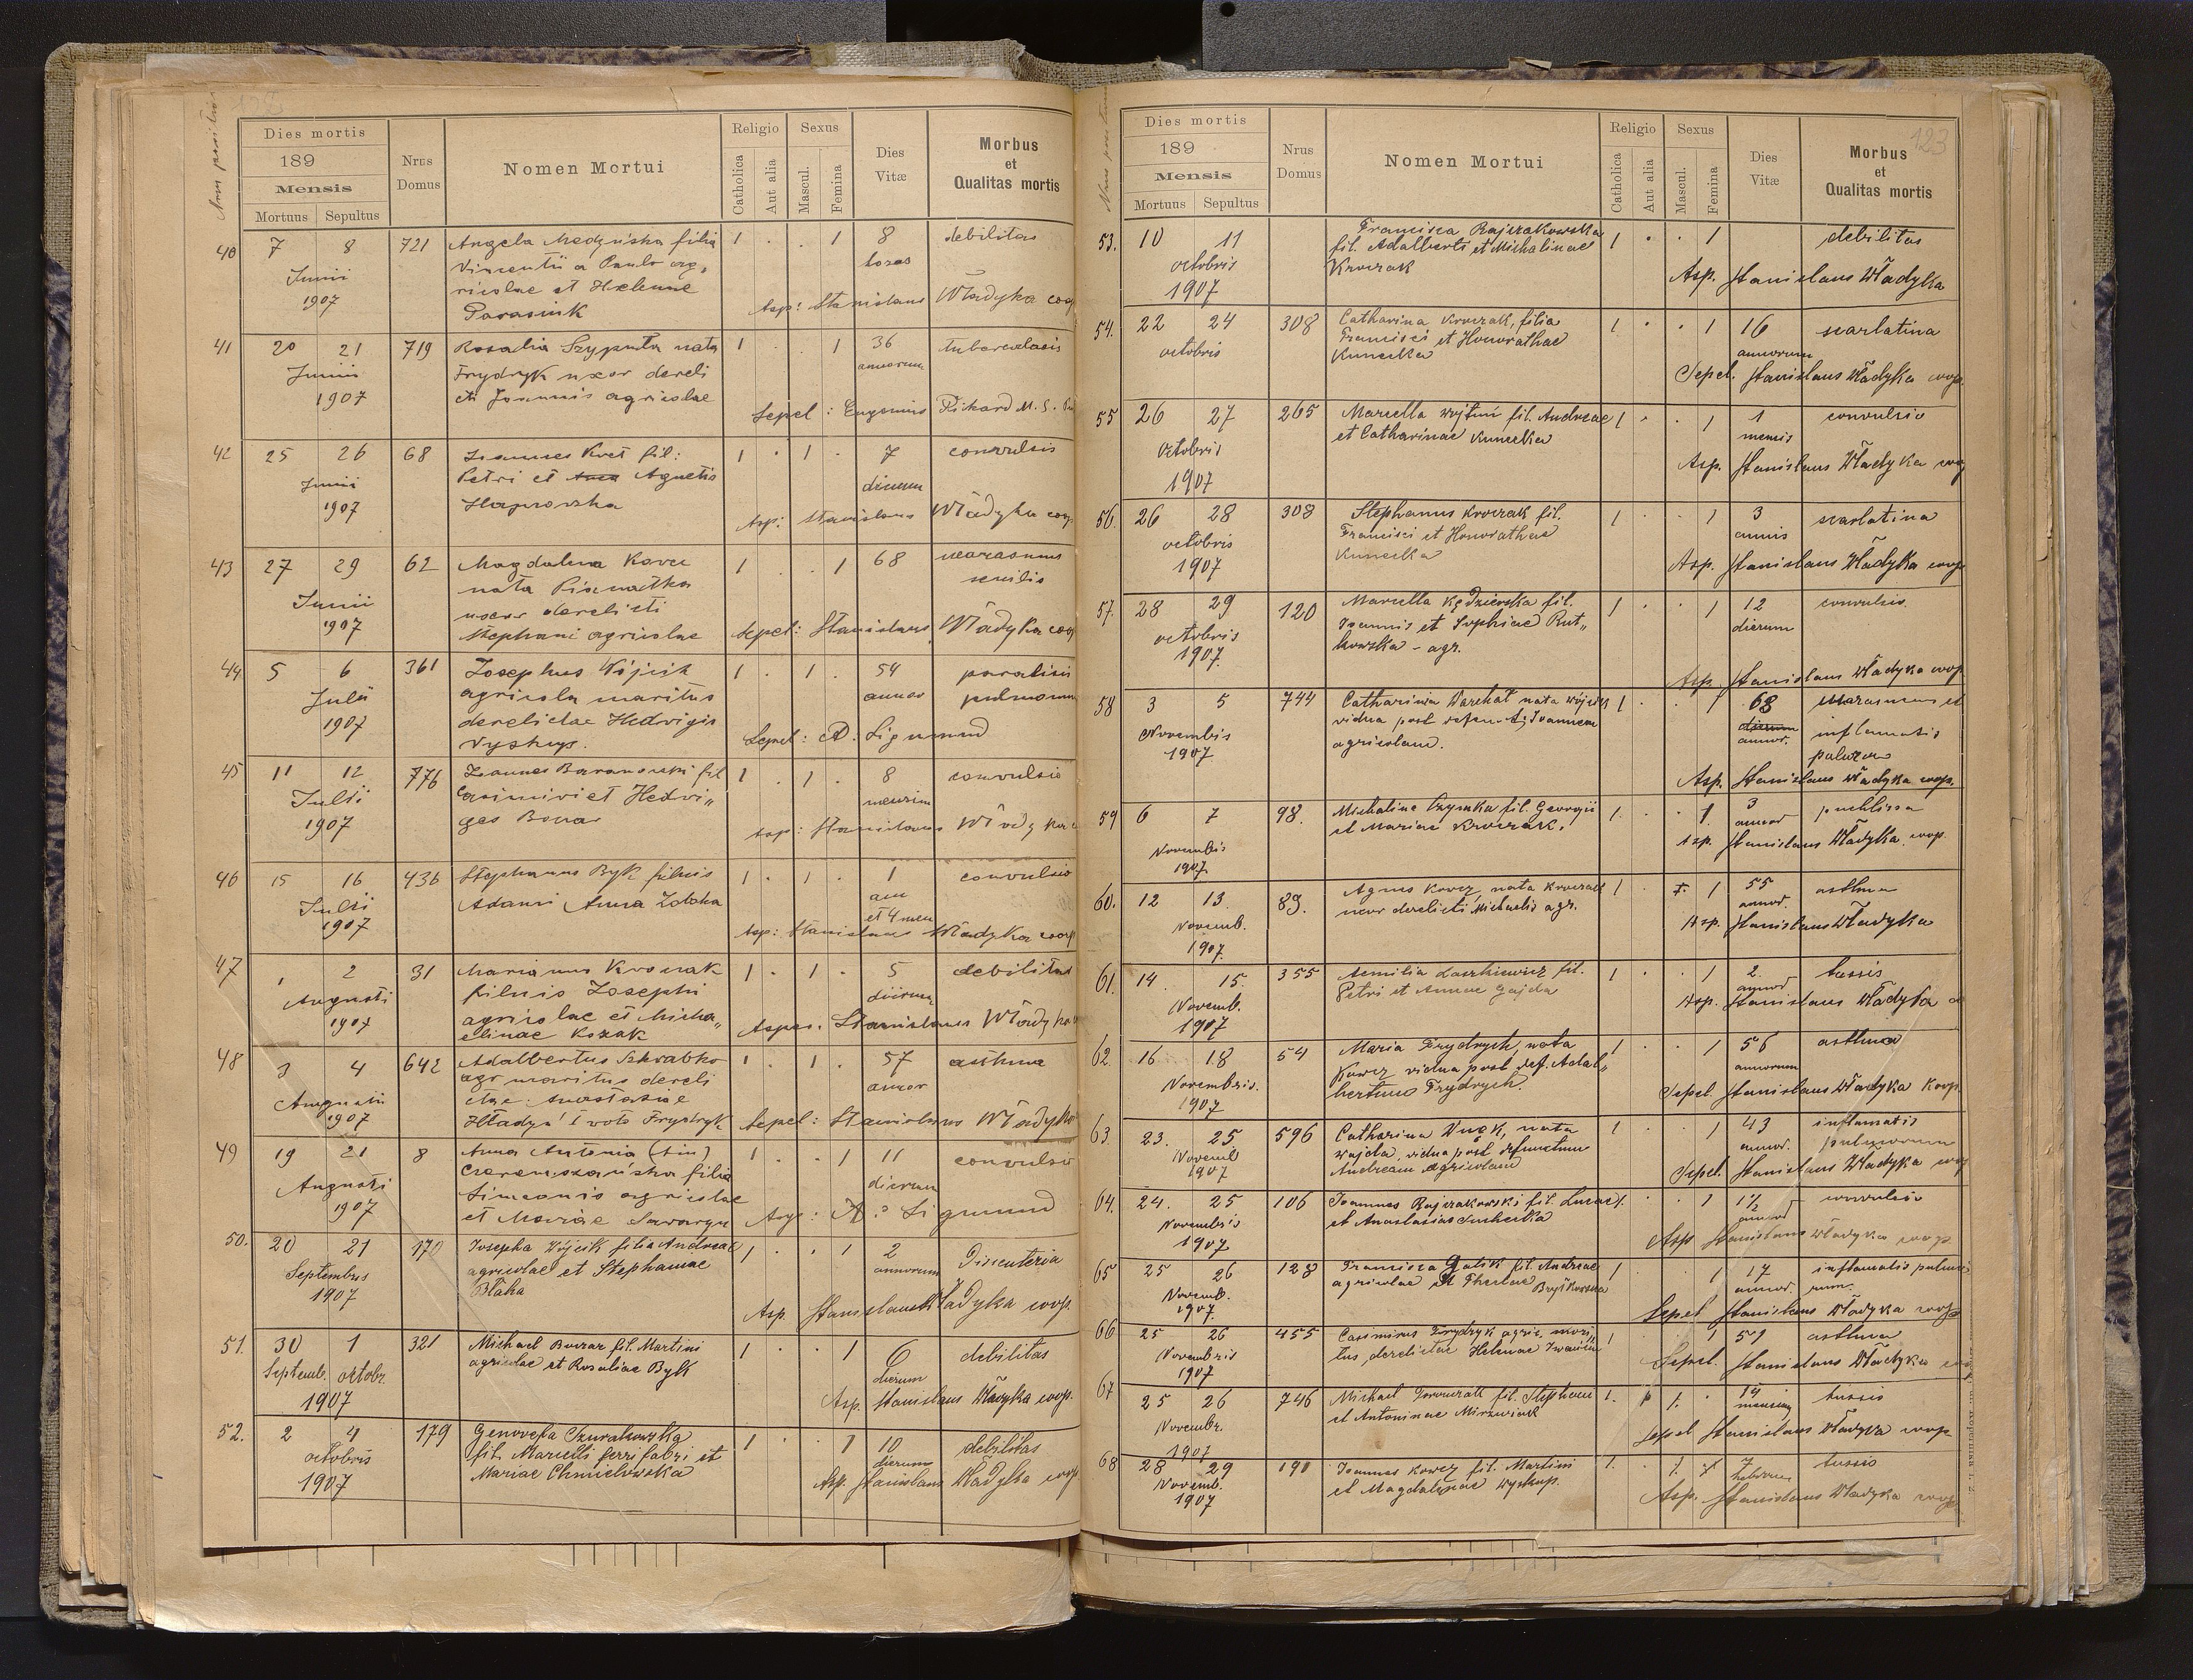 Dies mortis
189
Mensis
Mortuus Sepultus
Nrus Domus
Nomen Mortui
Religio
Catholica
Aut alia
Sexus
Mascul.
Femina
Dies Vitæ
Morbus
et
Qualitas mortis
40 7 8 721 Angela Medyńska filia 1 . . 1 8 debilitas
Junii Vincentii a Paulo ag„ horas
1907 ricolae et Helenae
Parasiuk Asp: Stanislaus Władyka coop
41 20 21 719 Rosalia Szypuła nata 1 . . 1 36 tuberculosis
Junii Frydryk uxor dereli annorum
1907 cti Joannis agricolae
Sepel: Eugenius Pikard M. S.
42 25 26 68 Joannes Kret fil: 1 . 1 . 7 convulsis
Junii Petri et Anna Agnetis dierum
1907
Asp: Stanislaus Władyka coop
43 27 29 62 Magdalena Korcz 1 . . 1 68 marasmus
Junii nata senilis
1907 uxor derelicti
Stephani agricolae Sepel: Stanislaus Władyka coop
44 5 6 361 Josephus Wójcik 1 . 1 . 54 paralisis
Julii agricola maritus annor pulmonum
1907 derelictae Hedvigis
Vyskup. Sepel: A. Sigmund
45 11 12 776 Joannes Baranowski fil 1 . 1 . 8 convulsio
Julii Casimiri et Hedvi„ mensium
1907 ges Bonar Asp: Stanislaus Władyka
46 15 16 436 Stephanus Byk filius 1 . 1 . 1 convulsio
Julii Adami Anna Zołoha ann
1907 et 4 men
Asp: Stanislaus Władyka coop
47 1 2 31 Marianus Kroczak 1 . 1 . 5 debilitas
Augusti filius Josephi dierum
1907 agricolae et Micha„
elinae Kozak Asper: Stanislaus Władyka
48 3 4 642 Adalbertus Skrabko 1 . 1 . 57 asthma
Augusti agr maritus dereli annor
1907 ctae Anastasiae
Hładyś I voto Frydryk Sepel: Stanislaus Władyka
49 19 21 8 Anna Antonia (bin) 1 . . 1 11 convulsio
Augusti filia dierum
1907 Simeonis agricolae
et Mariae Asp: A. Sigmund
50. 20 21 170 Josepha Wójcik filia Andreae 1 . . 1 2 Dissenteria
Septembris agricolae et Stephaniae annorum
1907 Błaha
Asp. Stanislaus Władyka coop.
51. 30 1 321 Michael Buczar fil. Martini 1 . . 1 6 debilitas
Septemb. octobr. agricolae et Rosaliae Byłk dierum
1907 Asp. Stanislaus Władyka coop.
52. 2 4 179 Genovefa Czurakowska 1 . . 1 10 debilitas
octobris fil. Marcelli ferri fabri et dierum
1907 Mariae Chmielowska Asp. Stanislaus Władyka coop
123
Dies mortis
189
Mensis
Mortuus Sepultus
Nrus Domus
Nomen Mortui
Religio
Catholica
Aut alia
Sexus
Mascul.
Femina
Dies Vitæ
Morbus
et
Qualitas mortis
53. 10 11 Francisca Rajzakowska 1 . . 1 debilitas
octobris fil. Adalberti et Michalinae
1907 Kroczak Asp. Stanislaus Władyka
54. 22 24 308 Catharina Kroczak, filia 1 . . 1 16 scarlatina
octobris Francisci et Honorathae annorum
Kunecka Sepel. Stanislaus Władyka coop.
55 26 27 265 Marcella Wojtuń fil. Andreae 1 . . 1 1 convulsio
octobris et Catharinae Kunecka mensis
1907 Asp. Stanislaus Władyka coop
56. 26 28 308 Stephanus Kroczak fil. 1 . . 1 3 scarlatina
octobris Francisci et Honorathae annis
1907 Kunecka Asp. Stanislaus Władyka coop
57. 28 29 120 Marcella Kędzierska fil. 1 . . 1 12 convulsio
octobris Joannis et Sophiae Rut„ dierum
1907. kowska - agr.
Asp. Stanislaus Władyka coop
58 3 5 744 Catharina Warchał nata Wójcik 1 . . 1 68 marasmus et
Novembis vidua post defunctum Joannem dierum annor. inflamatis
1907 agricolam. pulmon
Asp. Stanislaus Władyka coop.
59 6 7 98. Michalina Czymka fil. Georgii 1. . . 1. 3 puchlina
Novembis et Mariae Kroczak. annor
1907 Asp. Stanislaus Władyka coop.
60. 12 13. 89. Agnes Korcz, nata Kroczak 1 . 1 55 asthma
Novemb. uxor derelicti Michaelis agr. annor.
1907. Asp. Stanislaus Władyka
61. 14. 15. 355 Aemilia Laszkiewicz fil. 1 . . 1 2. tussis
Novemb. Petri et Annae Gajda annor
1907 Asp. Stanislaus Władyka
62. 16 18 54 Maria Frydrych, nata 1 . . 1 56 asthma
Novembris. Korcz vidua post def. Adal„ annorum
1907 bertum Frydrych. Sepel. Stanislaus Władyka Koop.
63. 23. 25. 596 Catharina Wnęk, nata 1 . 1 43 inflamatis
Novemb Wajda, vidua post defunctum annor. pulmonum
1907 Andream agricolam Sepel. Stanislaus Władyka coop
64. 24. 25 106 Joannes Rajzakowski fil. Lucae 1. . 1 1½ convulsio
Novembris et Anastasiae annor
1907 Asp Stanislaus Władyka coop
65 25 26 128 Francisca Galik fil. Andreae 1 . 1 17 inflamatis pulmo
Novemb. agricolae et Theclae annor. num.
1907. Sepel Stanislaus Władyka coop
66 25 26 455 Casimirus Frydryk agric. mari„ 1 . 1 59 asthma
Novembris tus derelictae Helenae
1907 Sepel. Stanislaus Władyka
67 25 26 746 Michael fil. Stephani 1. 1. . 14 tussis
Novembr. et Antoninae mensium
1907 Sepel Stanislaus Władyka coop
68 28 29 191 Joannes Korcz fil. Martini 1. . 1. 7 tussis
Novemb. et Magdalenae Wyskup.
1907 Asp. Stanislaus Władyka coop